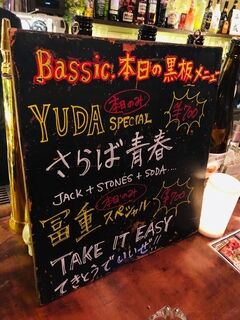 Bassic.本日の黒板メニュー
YUDA 本日のみ SPECIAL ¥700
さらば青春
JACK + STONES + SODA....
冨重 本日のみ スペシャル ¥700
TAKE IT EASY
てきとうでいいぜ!!